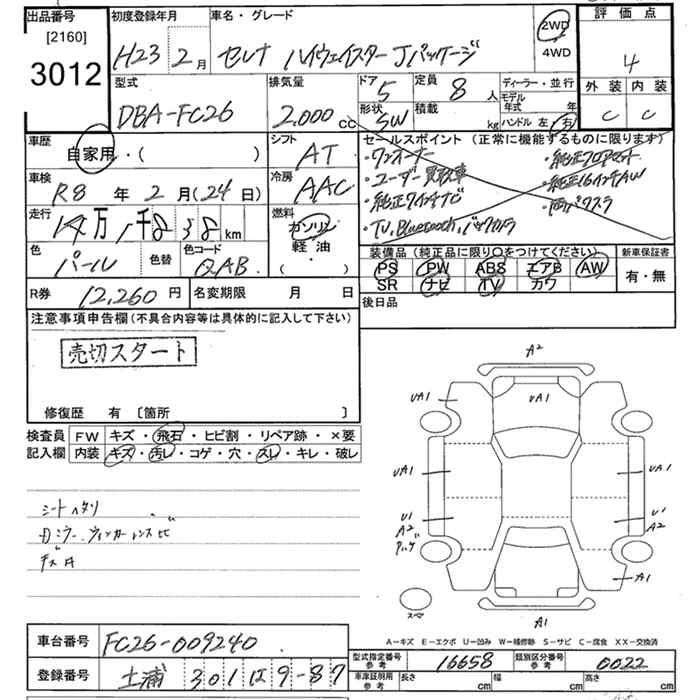 出品番号
[2160]
3012
初度登録年月
H23 2月
車名・グレード
セレナ ハイウェイスター Jパッケージ
2WD
4WD
評価点
4
外装 内装
C C
型式
DBA-FC26
排気量
2.000 cc
ドア 5
形状 SW
定員 8 人
積載 kg
ディーラー・並行
モデル年式 年
ハンドル 左・右
車歴
自家用・( )
シフト
AT
セールスポイント (正常に機能するものに限ります)
・ワンオーナー
・ユーザー買取車
・純正7インチナビ
・TV, Bluetooth, バックカメラ
・純正フロアマット
・純正16インチAW
・両パワスラ
車検
R8 年 2 月 (24 日)
冷房
AAC
走行
14万 1千8 38 km
燃料
ガソリン
軽油・
( )
色
パール
色替
色コード
QAB
装備品 (純正品に限り○をつけてください)
PS PW ABS エアB AW
SR ナビ TV カワ
新車保証書
有・無
R券 12,260 円
名変期限 月 日
後日品
注意事項申告欄 (不具合内容等は具体的に記入して下さい)
売切スタート
修復歴 有 〔箇所 〕
検査員 FW キズ・飛石・ヒビ割・リペア跡・×要
記入欄 内装 キズ・汚レ・コゲ・穴・スレ・キレ・破レ
シートヘタリ
ドミラー ウィンカーレンズヒビ
A2
UA1
UA1
UA1
UA1
U1
A2
U1
A2
A1
A1
スペア
A-キズ E-エクボ U-凹み W-補修跡 S-サビ C-腐食 XX-交換済
車台番号 FC26-009240
登録番号 土浦 301 は 9-87
型式指定番号
参考
16658
類別区分番号
参考
0022
車庫証明用
参考
長さ cm
幅 cm
高さ cm